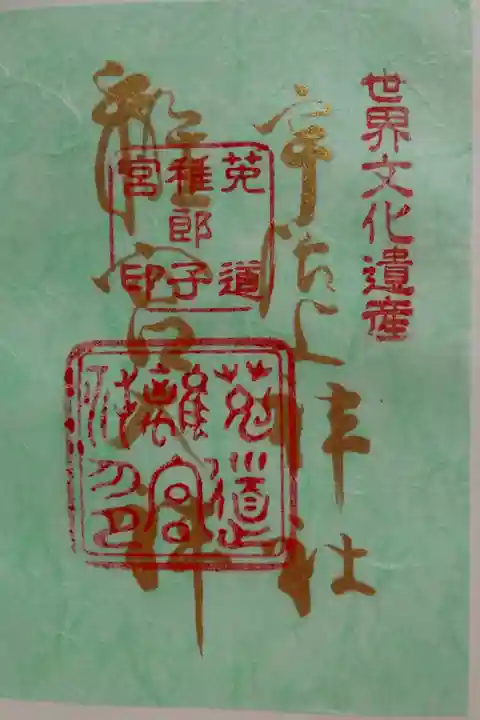 世界文化遺産
宇治上神社
離宮大神
莵道
稚郎子
宮印
莵道
離宮